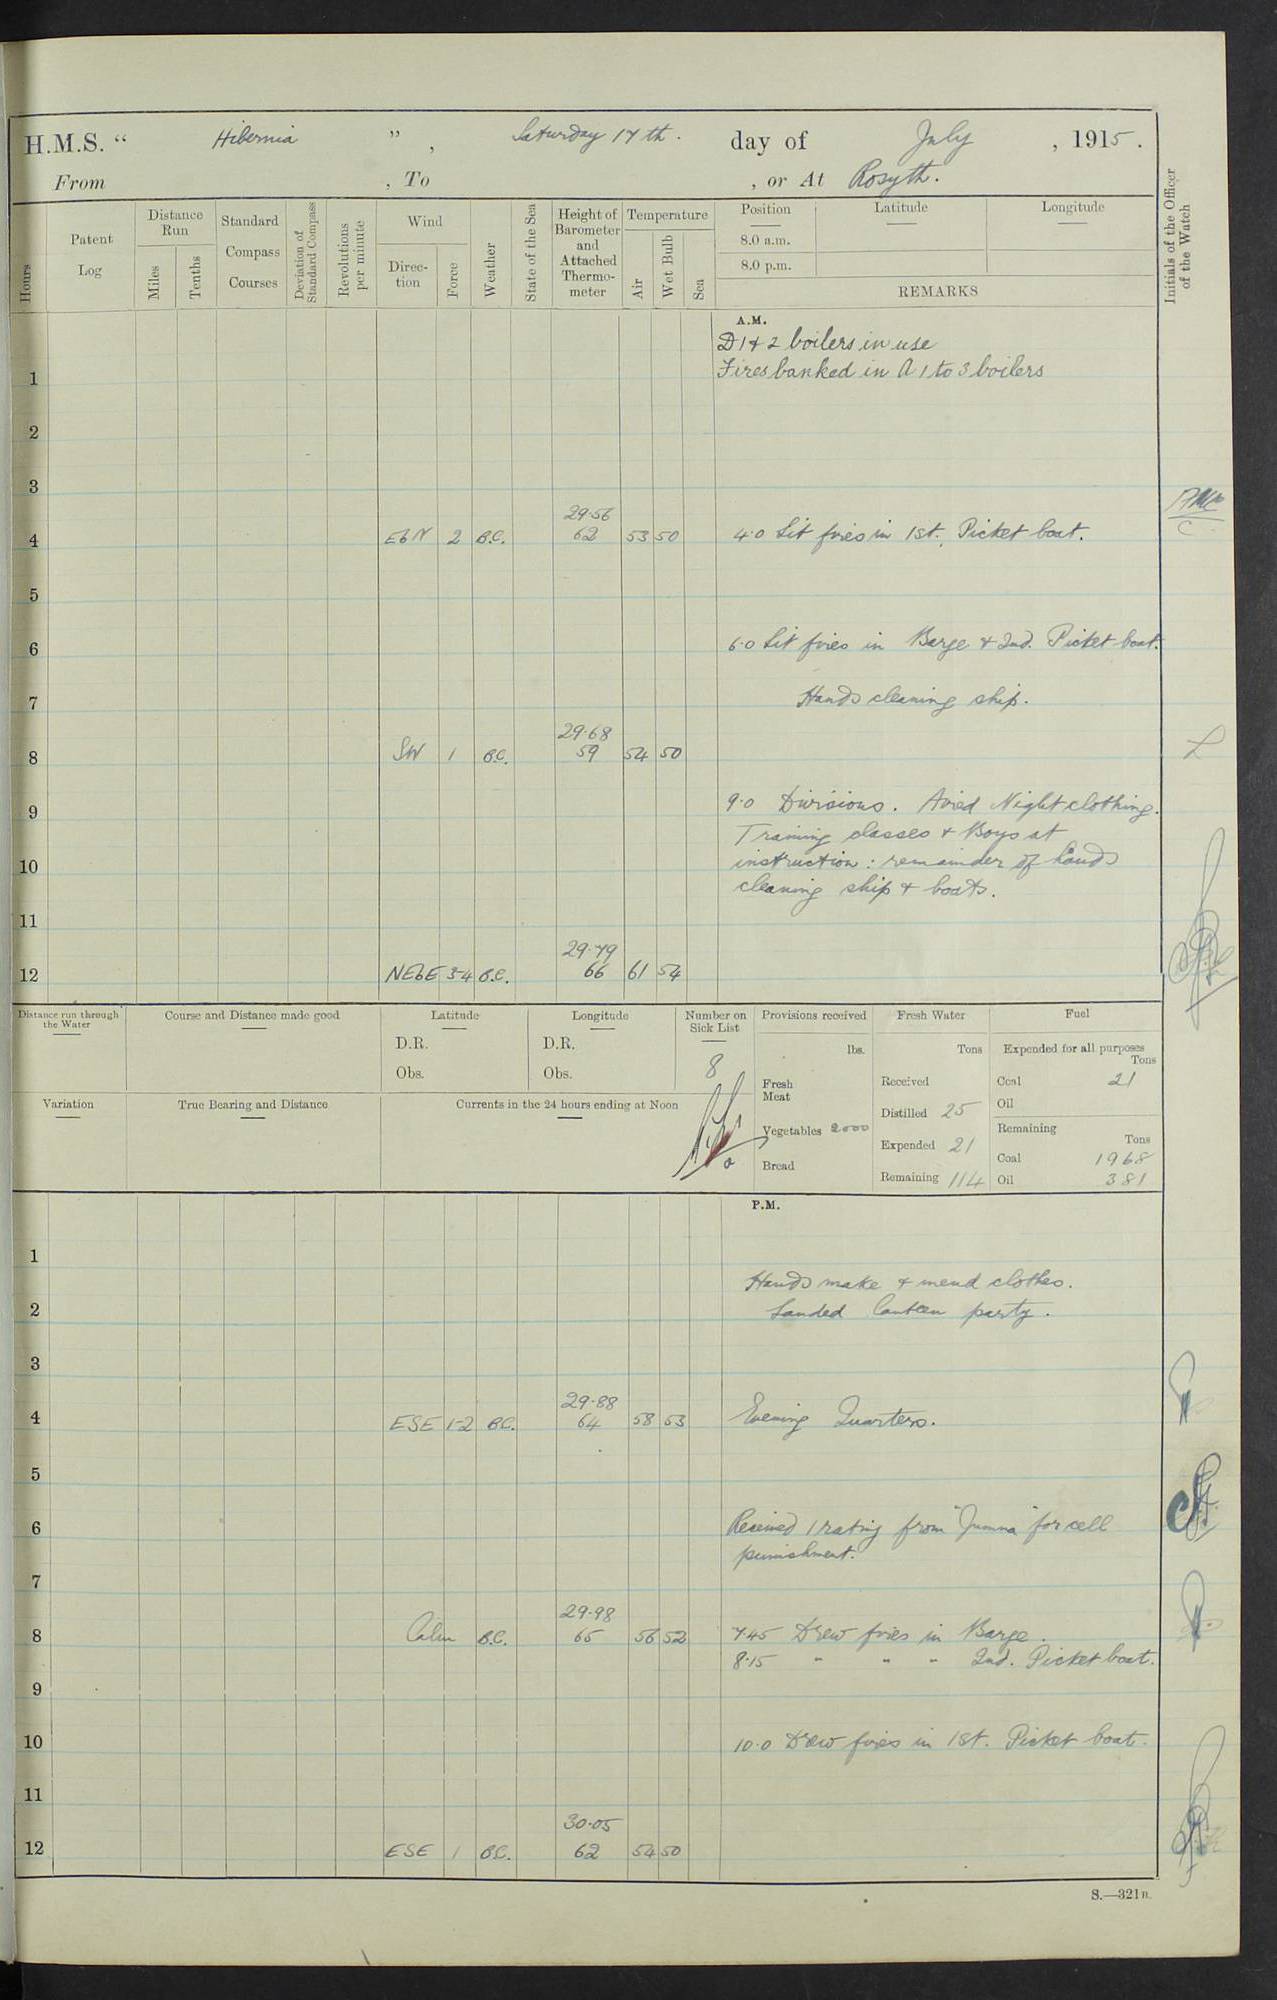 H.M.S. “ Hibernia ” , Saturday 17th. day of July , 1915.
From , To , or At Rosyth.
Hours
Patent Log
Distance Run
Miles
Tenths
Standard Compass Courses
Deviation of Standard Compass
Revolutions per minute
Wind
Direction
Force
Weather
State of the Sea
Height of Barometer and Attached Thermometer
Temperature
Air
Wet Bulb
Sea
Position Latitude Longitude
8.0 a.m.
8.0 p.m.
REMARKS
Initials of the Officer of the Watch
A.M.
D 1 & 2 boilers in use
1 Fires banked in A 1 to 3 boilers
2
3
29.56
4 EbN 2 B.C. 62 53 50 4.0 Lit fires in 1st. Picket boat.
5
6 6.0 Lit fires in Barge & 2nd. Picket boat.
7 Hands cleaning ship.
29.68
8 SW 1 B.C. 59 54 50 L
9 9.0 Divisions. Aired Night clothing.
Training classes & Boys at
10 instruction : remainder of hands
cleaning ship & boats.
11
29.79
12 NEbE 3-4 B.C. 66 61 54
Distance run through the Water
Course and Distance made good
Latitude
D.R.
Obs.
Longitude
D.R.
Obs.
Number on Sick List
8
Provisions received
lbs.
Fresh Meat
Vegetables 2000
Bread
Fresh Water
Tons
Received
Distilled 25
Expended 21
Remaining 114
Fuel
Expended for all purposes
Tons
Coal 21
Oil
Remaining
Tons
Coal 1968
Oil 381
Variation
True Bearing and Distance
Currents in the 24 hours ending at Noon
P.M.
1
Hands make & mend clothes.
2 Landed Canteen party.
3
29.88
4 ESE 1-2 B.C. 64 58 53 Evening Quarters.
5
6 Received 1 rating from "Jumna" for cell
punishment.
7
29.98
8 Calm B.C. 65 56 52 7.45 Drew fires in Barge.
8.15 " " " 2nd. Picket boat.
9
10 10.0 Drew fires in 1st. Picket boat.
11
30.05
12 ESE 1 B.C. 62 54 50
S.—321B.